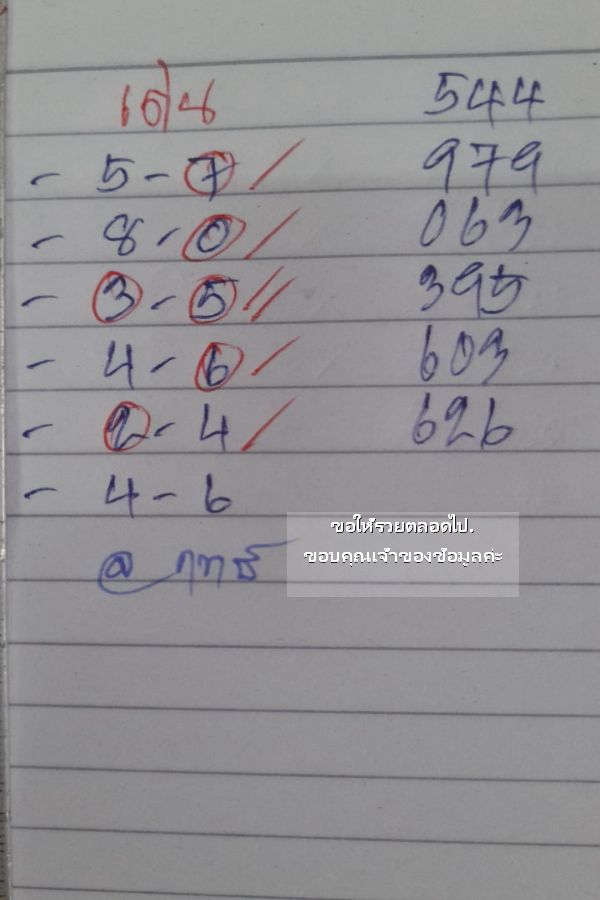 เด่น 544
- 5 - 7 / 979
- 8 - 0 / 063
- 3 - 5 // 395
- 4 - 6 / 603
- 2 - 4 / 626
- 4 - 6
ขอให้รวยตลอดไป.
ขอบคุณเจ้าของข้อมูลค่ะ
@